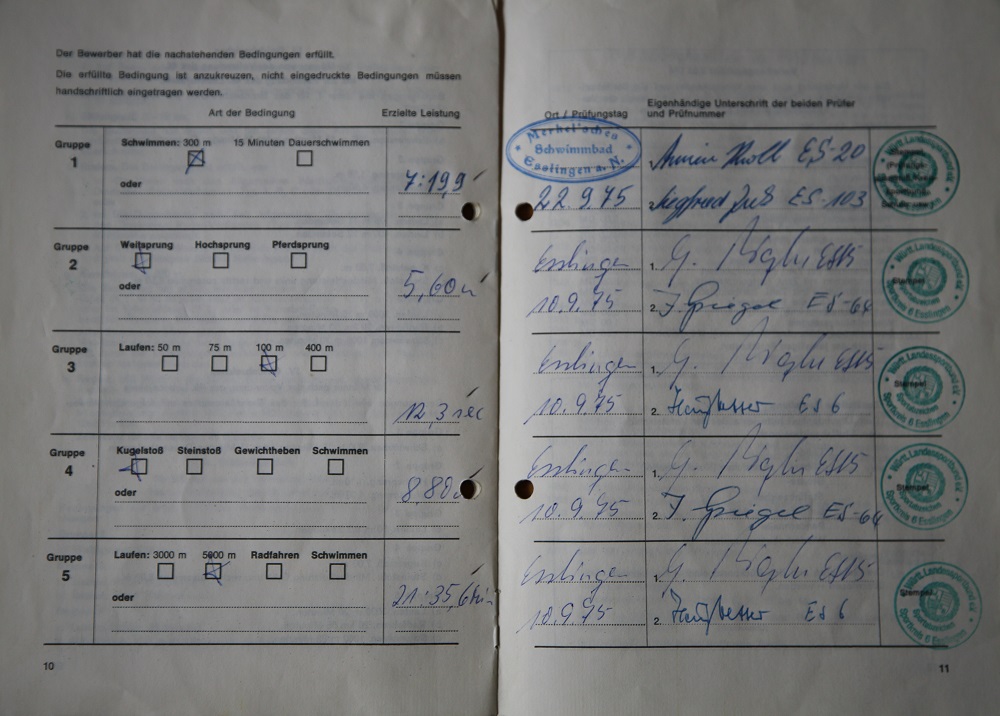 Der Bewerber hat die nachstehenden Bedingungen erfüllt.
Die erfüllte Bedingung ist anzukreuzen, nicht eingedruckte Bedingungen müssen
handschriftlich eingetragen werden.
Art der Bedingung Erzielte Leistung
Gruppe
1
Schwimmen: 300 m 15 Minuten Dauerschwimmen
oder
7:19,9
Gruppe
2
Weitsprung Hochsprung Pferdsprung
oder
5,60
Gruppe
3
Laufen: 50 m 75 m 100 m 400 m
12,3 sec
Gruppe
4
Kugelstoß Steinstoß Gewichtheben Schwimmen
oder
8,80
Gruppe
5
Laufen: 3000 m 5000 m Radfahren Schwimmen
oder
21:35,6
10
Ort / Prüfungstag
Eigenhändige Unterschrift der beiden Prüfer
und Prüfnummer
Merkel'sches
Schwimmbad
Esslingen a. N.
22.9.75
ES-20
2. Siegfried ES-103
Esslingen
10.9.75
1. G. ES15
2. J. Spiegel ES-64
Stempel
Esslingen
10.9.75
1. G. ES15
2. ES 6
Stempel
Württ. Landessportbund e.V.
Sportkreis 6 Esslingen
Esslingen
10.9.75
1. G. ES15
2. J. Spiegel ES-64
Stempel
Württ. Landessportbund e.V.
Sportkreis 6 Esslingen
Esslingen
10.9.75
1. G. ES15
2. ES 6
Stempel
Württ. Landessportbund e.V.
Sportkreis 6 Esslingen
11